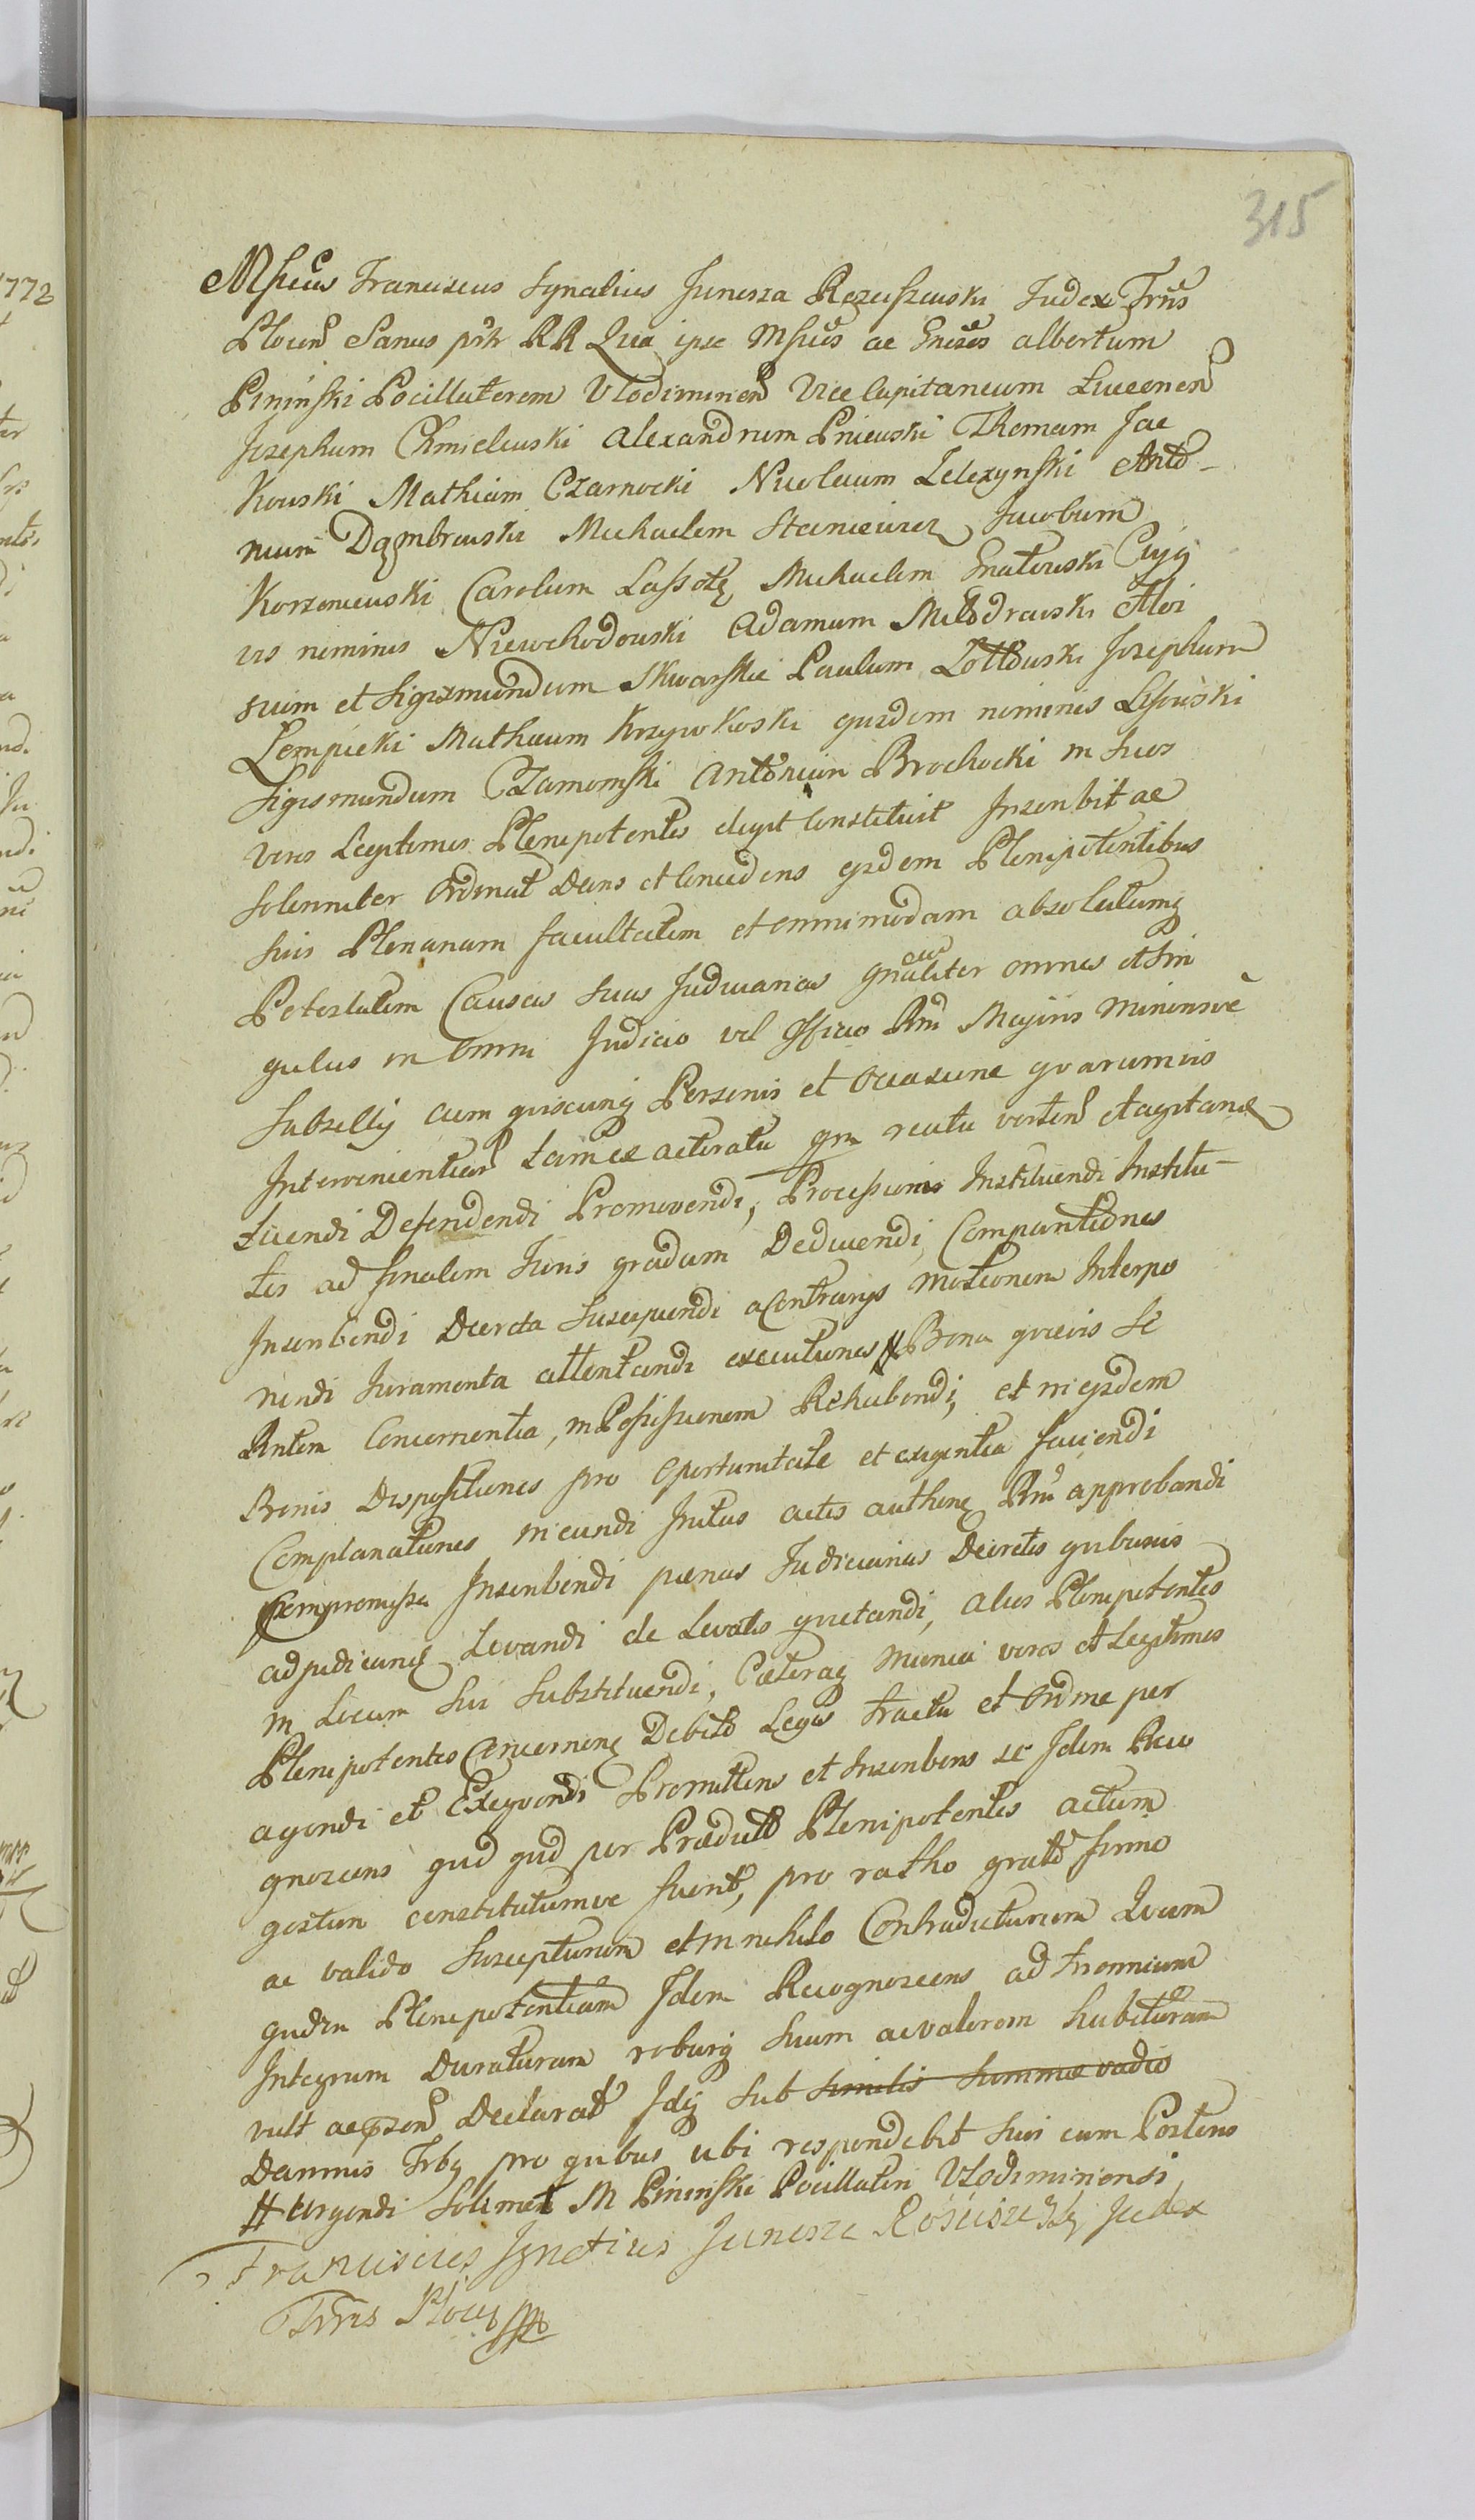 315
Mficus Franciscus Ignatius Junosza Rosciszewski Judex Trris
Plocen Sanus pntr RR Qua ipse Mficus ac Gnosos albertum
Pininski Pocillatorem Vlodimirien Vice Capitaneum Luceonen
Josephum Chmielewski Alexandrum Pniewski Thomam Jac
Kowski Mathiam Czarnocki Nicolaum Zelezynski Anto-
nium Dąmbrowski Michaelem Staniewicz Jacobum
Korzeniewski Carolum Lassotę Michaelem Gnatowski Cujq
vis nominis Niewochodowski Adamum Milodrowski Aloi
sium et Sigismundum Skwarskie Paulum Zottowski Josephum
Lempicki Mathaum Krzywkoski ejusdem nominis Lisowski
Sigismundum Czamomski Antonium Brochocki in Suos
veros Legitimos Plenipotentes elegit Constituit Inscribit ac
Solenniter Ordinat Dans et Concedens ejsdem Plenipotentibus
Suis Plenariam facultatem et omnimodam absolutamq
Potestatem Causas Suas Judiciarias gnaliter omnes et Sin
gulas in Omni Judicio vel Officio Rni Majoris Minorisve
Subsellij cum quiscunq Personis et Occasione quarumvis
Intervenientium tam ex actoratu qm reatu verten et agitan
tuendi Defendendi Promovendi, Processum Instituendi Institu-
tos ad finalem Juris gradum Deducendi, Comparitiones
Inscribendi Decreta Suscipiendi a Contrarijs motionem Interpo
nendi Juramenta attentandi executiones # Bona quaevis Se
Rntem Concernentia, in Possessionem Rehabendi, et in ejsdem
Bonis Dispositiones pro Oportunitate et exigentia faciendi
Complanationes ineundi Initas actis authen Rni approbandi
Compromissa Inscribendi paenas Judiciarias Decretis quibusvis
adjudicans Levandi de Levatis quietandi, alios Plenipotentes
in Locum Sui Substituendi, Caeteraq Munia veros et Legitimos
Plenipotentes Concernen Debito Legis tractu et Ordine per
agendi et Exequendi Promittens et Inscribens se Idem Reco
gnoscens quid quid per Praedictos Plenipotentes actum
gestum constitutumve fuerit, pro ratho grato firmo
ac valido Suscepturum et in nihilo Contradicturum Quam
quidem Plenipotentiam Idem Recognoscens ad triennium
Integrum Duraturam roburq Suum ac valorem habituram
vult ac pnsen Declarat Idq Sub similis Summae vadio
Damnis Trbq pro quibus ubi respondebit Suis cum Posteris
# urgendi Solimet M Pininski Pocillatori Vlodimiriensi
Franciscus Ignatius Junosza Rosciszewski Judex
Trris Ploc mpp